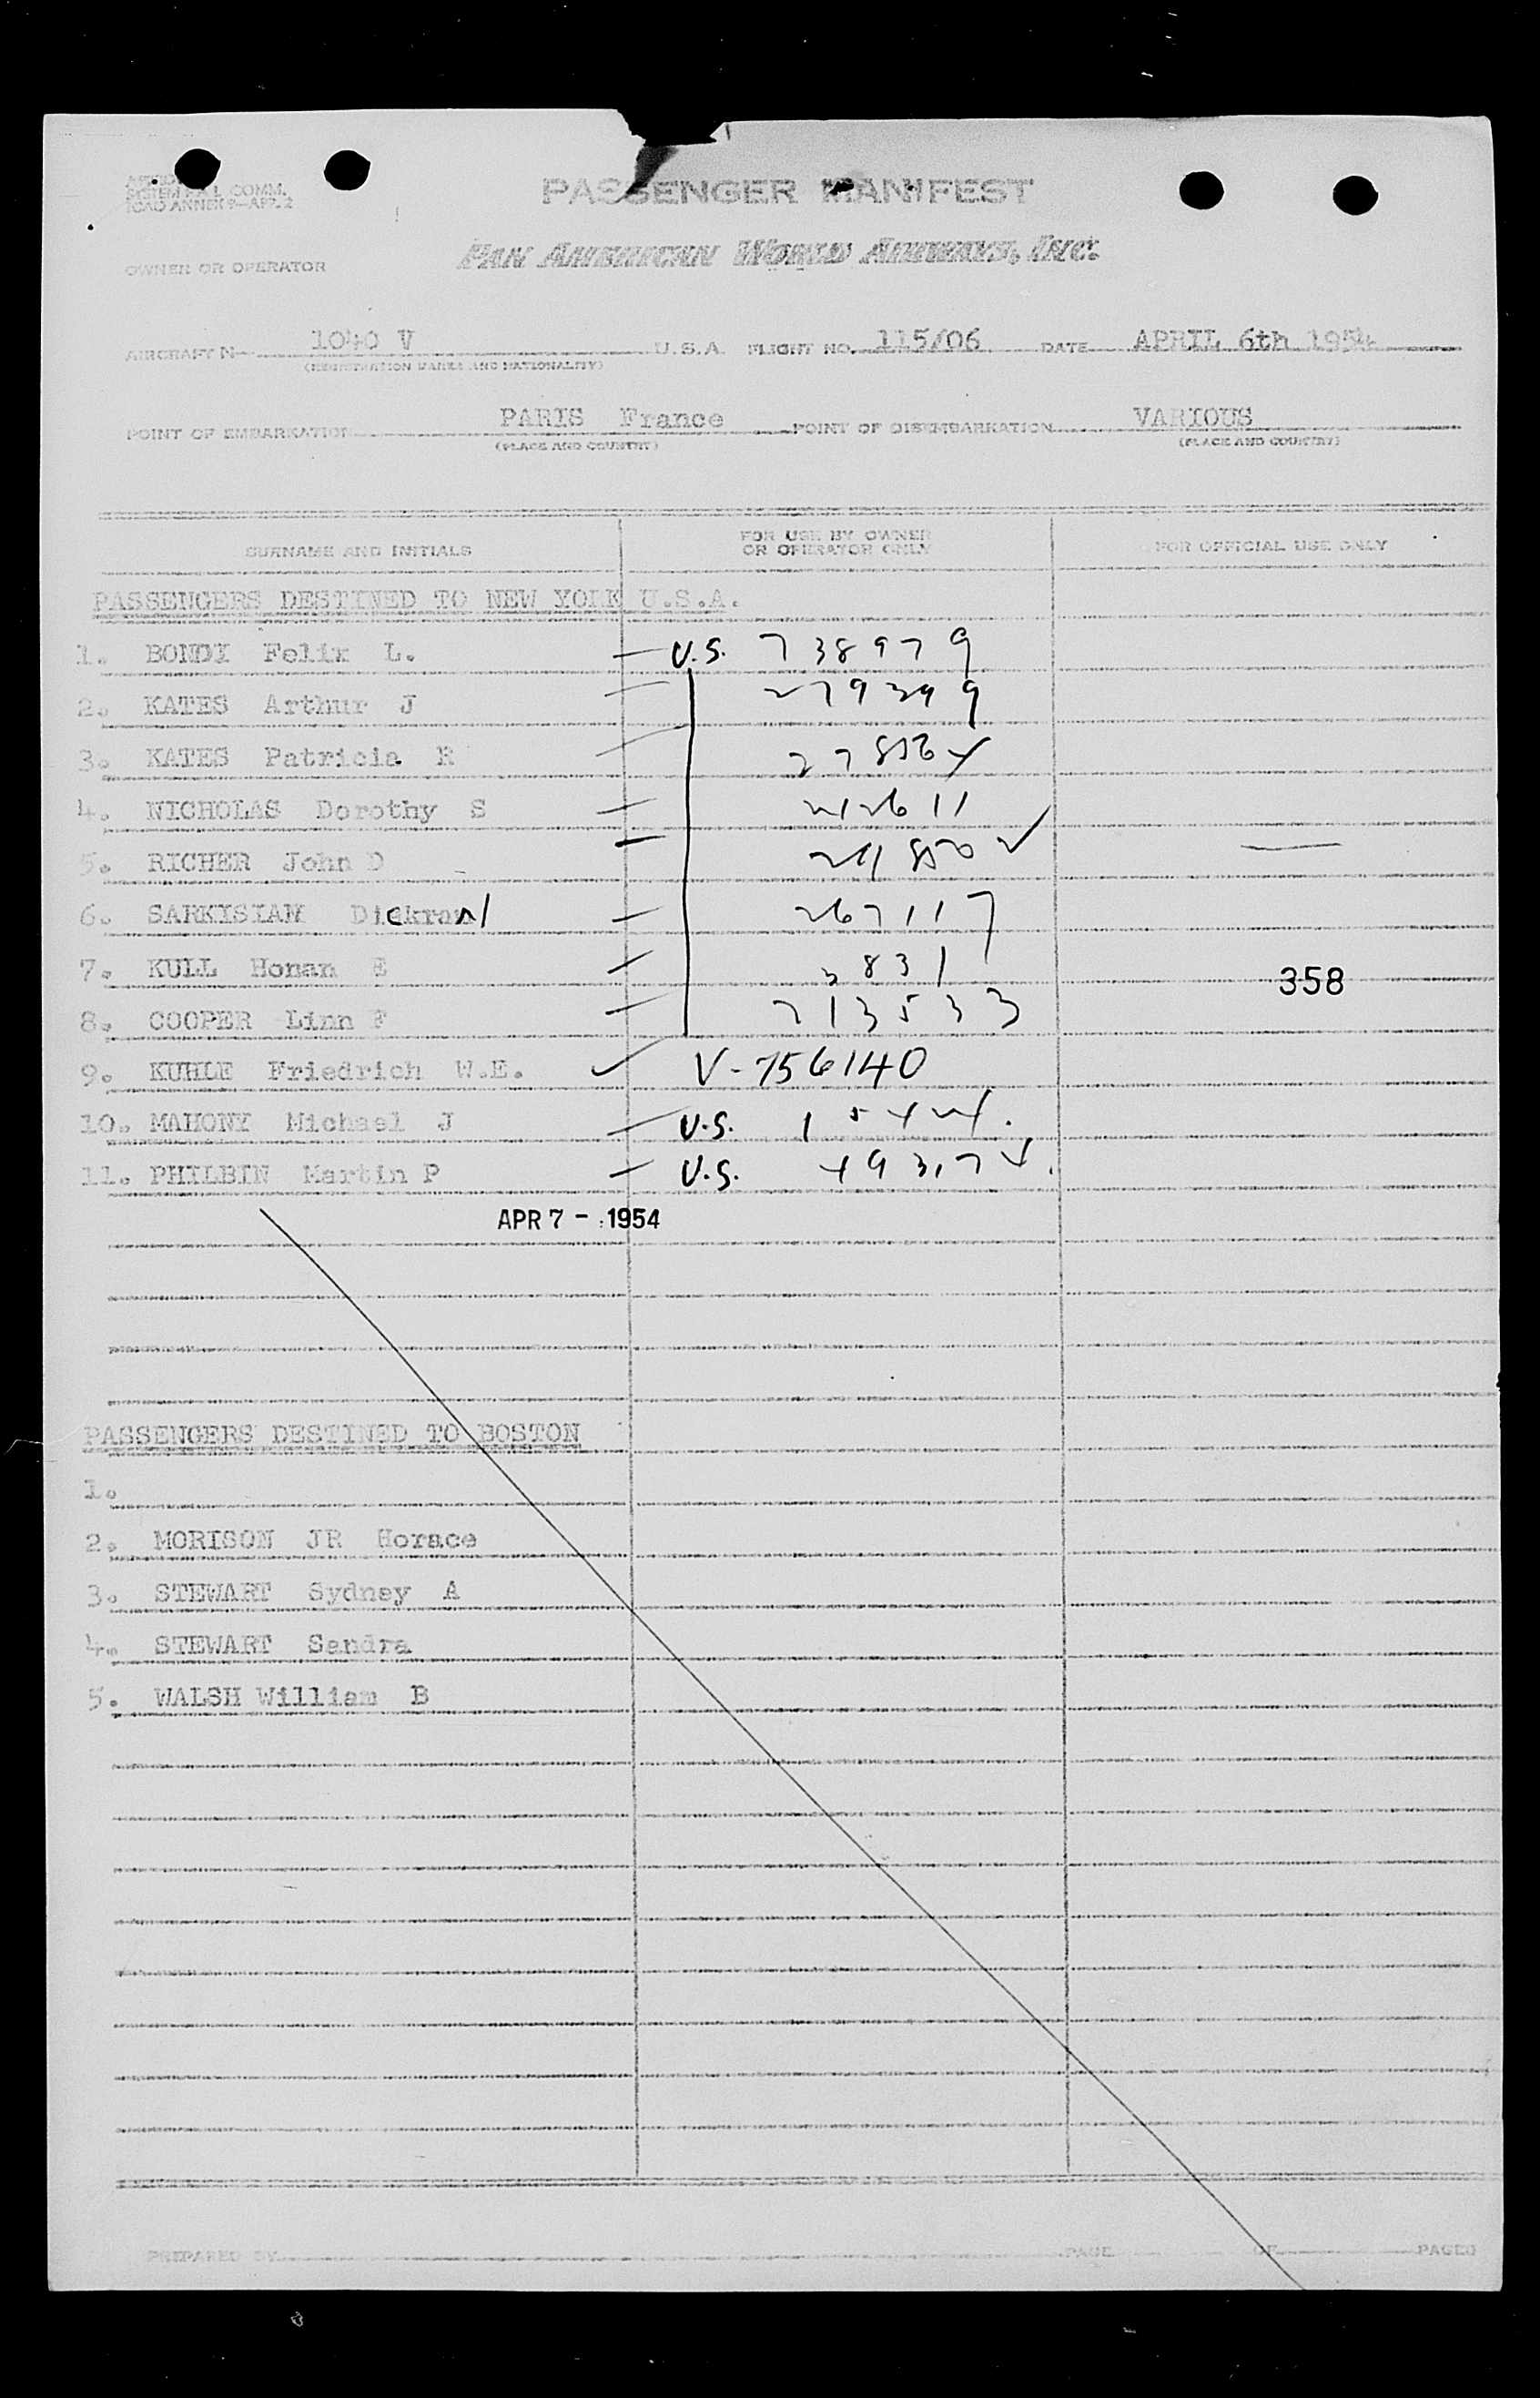 SYSTEM F.A.L. COMM.
ICAO ANNEX 9—APP. 2
PASSENGER MANIFEST
OWNER OR OPERATOR
PAN AMERICAN WORLD AIRWAYS, INC.
AIRCRAFT N 1040 V U.S.A. FLIGHT NO. 115/06 DATE APRIL 6th 1954
(REGISTRATION MARKS AND NATIONALITY)
POINT OF EMBARKATION PARIS France POINT OF DISEMBARKATION VARIOUS
(PLACE AND COUNTRY) (PLACE AND COUNTRY)
SURNAME AND INITIALS FOR USE BY OWNER OR OPERATOR ONLY FOR OFFICIAL USE ONLY
PASSENGERS DESTINED TO NEW YORK U.S.A.
1. BONDI Felix L. — U.S. 738979
2. KATES Arthur J — 279399
3. KATES Patricia R —
4. NICHOLAS Dorothy S — 212611
5. RICHER John D — ✓ —
6. SARKISIAN Dickran — 267117
7. KULL Honan E — 3831
358
8. COOPER Linn F — 713533
9. KUHLE Friedrich W.E. ✓ V-756140
10. MAHONY Michael J — U.S.
11. PHILBIN Martin P — U.S.
APR 7 - 1954
PASSENGERS DESTINED TO BOSTON
1.
2. MORISON JR Horace
3. STEWART Sydney A
4. STEWART Sandra
5. WALSH William B
PREPARED BY PAGE OF PAGES